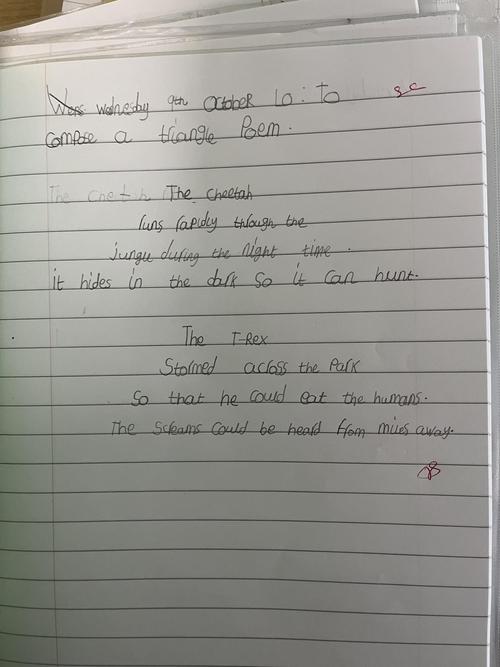 Wednesday 9th October Lo: To sc
compose a triangle Poem.
The cheetah
runs rapidly through the
jungle during the night time.
it hides in the dark so it can hunt.
The T-Rex
Stormed across the Park
So that he could eat the humans.
The screams could be heard from miles away.